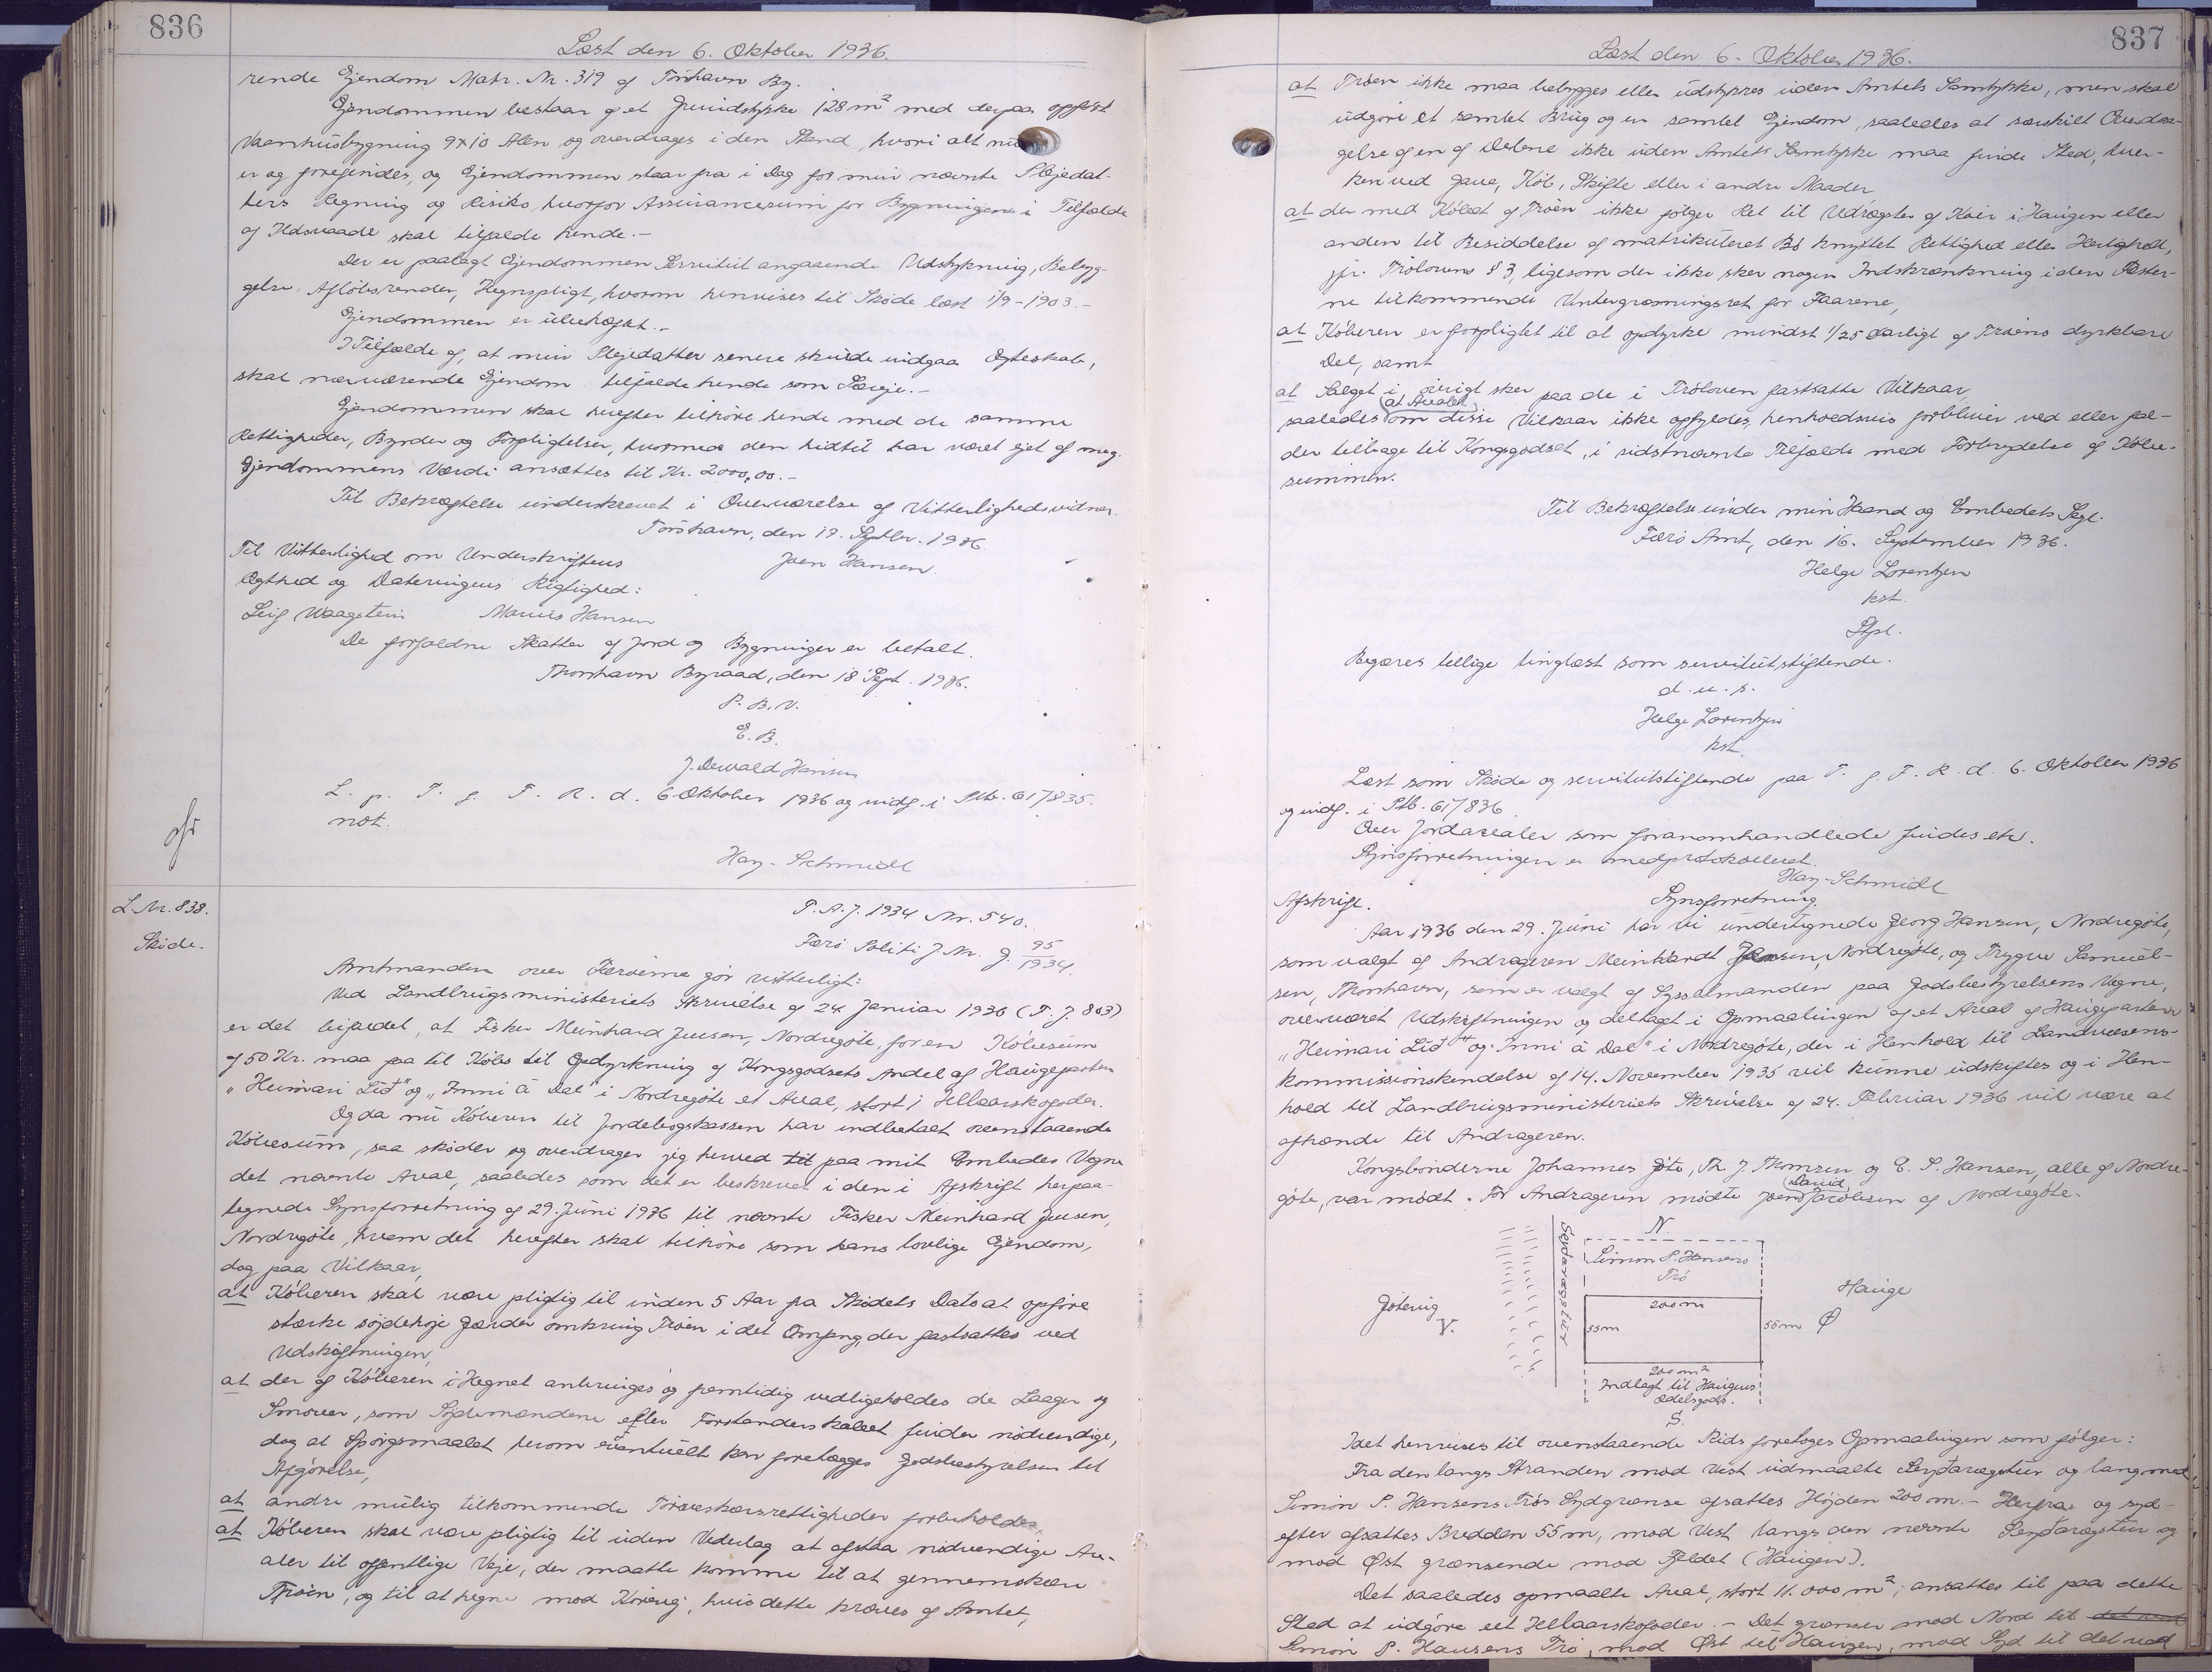 836
Læst den 6. Oktober 1936.
rende Ejendom Matr. Nr. 319 af Tórshavn By.
Ejendommen bestaar af et Grundstykke 128 m² med derpaa opført
Vaanhusbygning 9x10 Alen og overdrages i den Stand, hvori alt nu
er og forefindes, og Ejendommen staar fra i Dag for min nævnte Plejedat-
ters Regning og Risiko, hvorfor Assurancesum for Bygningen i Tilfælde
af Ildsvaade skal tilfalde hende.-
Der er paalagt Ejendommen Servitut angaaende Udstykning, Bebyg-
gelse, Afløbsrender, Hegnspligt, hvorom henvises til Skøde læst 1/9-1903.-
Ejendommen er ubehæftet.-
I Tilfælde af, at min Plejedatter senere skulde indgaa Ægteskab,
skal nærværende Ejendom tilfalde hende som Særeje.-
Ejendommen skal herefter tilhøre hende med de samme
Rettigheder, Byrder og Forpligtelser, hvormed den hidtil har været ejet af mig.
Ejendommens Værdi ansættes til Kr. 2000,00.-
Til Bekræftelse underskrevet i Overværelse af Vitterlighedsvidner.
Tórshavn, den 19. Septbr. 1936.
Til Vitterlighed om Underskriftens Joen Hansen.
Ægthed og Dateringens Rigtighed:
Leif Waagstein Marius Hansen
De forfaldne Skatter af Jord og Bygninger er betalt.
Thorshavn Byraad, den 18 Sept. 1936.
P. B. V.
E. B.
J. Dewald Hansen
L. p. T. f. F. R. d. 6 Oktober 1936 og indf. i Ptb. 61/835.
not.
Hay-Schmidt
L. Nr. 838.
Skøde.
P. A. J. 1934 Nr. 540.
Færø Politi J. Nr. G. 95/1934.
Amtmanden over Færøerne gør vitterligt:
Ved Landbrugsministeriets Skrivelse af 24 Januar 1936 (T. J. 803)
er det bifaldet, at Fisker Meinhard Juusen, Nordregøte, for en Købesum
af 50 Kr. maa faa til Købs til Opdyrkning af Kongsgodsets Andel af Haugeparten
"Heimari Lið" og "Inni á Dal" i Nordregøte et Areal, stort 1 Hellaarskofoder.
Og da nu Køberen til Jordebogskassen har indbetalt ovenstaaende
Købesum, saa skøder og overdrager jeg herved til paa mit Embedes Vegne
det nævnte Areal, saaledes som det er beskrevet i den i Afskrift herpaa-
tegnede Synsforretning af 29. Juni 1936 til nævnte Fisker Meinhard Juusen,
Nordregøte, hvem det herefter skal tilhøre som hans lovlige Ejendom,
dog paa Vilkaar,
at Køberen skal være pligtig til inden 5 Aar fra Skødets Dato at opføre
stærke søjdehøje Gærder omkring Trøen i det Omfang, der fastsattes ved
Udskiftningen,
at der af Køberen i Hegnet anbringes og fremtidig vedligeholdes de Laager og
Smøuer, som Sydemændene efter Forstanderskabet finder nødvendige,
dog at Spørgsmaalet herom eventuelt kan forelægges Godsbestyrelsen til
Afgørelse,
at andre mulig tilkommende Tørveskærsrettigheder forbeholdes,
at Køberen skal være pligtig til uden Vederlag at afstaa nødvendige Are-
aler til offentlige Veje, der maatte komme til at gennemskære
Trøen, og til at hegne mod Kørevej, hvis dette kræves af Amtet,
837
Læst den 6. Oktober 1936.
at Trøen ikke maa bebygges eller udstykkes uden Amtets Samtykke, men skal
udgøre et samlet Brug og en samlet Ejendom, saaledes at særskilt Overdra-
gelse af en af Delene ikke uden Amtets Samtykke maa finde Sted, hver-
ken ved Gave, Køb, Skifte eller i andre Maader
at der med Købet af Trøen ikke følger Ret til Udrægster af Køer i Haugen eller
anden til Besiddelse af matrikuleret Bø knyttet Rettighed eller Herlighed,
jfr. Trøloven § 3, ligesom der ikke sker nogen Indskrænkning i den Fæster-
ne tilkommende Vintergræsningsret for Faarene,
at Køberen er forpligtet til at opdyrke mindst 1/25 aarligt af Trøens dyrkbare
Del, samt
at Salget i øvrigt sker paa de i Trøloven fastsatte Vilkaar,
saaledes at Arealet om disse Vilkaar ikke opfyldes, henholdsvis forbliver ved eller fal-
der tilbage til Kongsgodset, i sidstnævnte Tilfælde med Fortrydelse af Købe-
summen.
Til Bekræftelse under min Haand og Embedets Segl.
Færø Amt, den 16. September 1936.
Helge Lorentzen
kst.
Stpl.
Begæres tillige tinglæst som servitutstiftende.
d. u. s.
Helge Lorentzen
kst.
Læst som Skøde og servitutstiftende paa T. f. F. R. d. 6. Oktober 1936
og indf. i Ptb. 61/836.
Over Jordarealer som foranomhandlede findes etc.
Synsforretningen er medprotokolleret.
Hay-Schmidt
Afskrift. Synsforretning.
Aar 1936 den 29. Juni har vi undertegnede Georg Hansen, Nordregøte,
som valgt af Andrageren Meinhardt Jensen, Nordregøte, og Trygve Samuel-
sen, Thorshavn, som er valgt af Sysselmanden paa Godsbestyrelsens Vegne,
overværet Udskiftningen og deltaget i Opmaalingen af et Areal af Haugeparten
"Heimari Lið" og "Inni á Dal" i Nordregøte, der i Henhold til Landvæsens-
kommissionskendelse af 14. November 1935 vil kunne udskiftes og i Hen-
hold til Landbrugsministeriets Skrivelse af 24. Februar 1936 vil være at
afhænde til Andrageren.
Kongsbønderne Johannes Gøte, Th. J. Thomsen og E. P. Hansen, alle af Nordre-
gøte, var mødt. For Andrageren mødte Joen David Jacobsen af Nordregøte.
N
Simon P. Hansens
Trø
200 m
55 m
55 m
Gøtevig
V.
Seyðarægstur
Hauge
Ø
200 m²
Indlagt til Haugens
Odelsgods.
S.
Idet henvises til ovenstaaende Rids foretoges Opmaalingen som følger:
Fra den langs Stranden mod Vest udmaalte Seyðarægstur og lang med
Simon P. Hansens Trøs Sydgrænse afsattes Højden 200 m.- Herfra og syd-
efter afsattes Bredden 55 m, mod Vest langs den nævnte Seyðarægstur og
mod Øst grænsende mod Fjeldet (Haugen).
Det saaledes opmaalte Areal, stort 11.000 m², ansattes til paa dette
Sted at udgøre eet Hellaarskofoder.- Det grænser mod Nord til
Simon P. Hansens Trø, mod Øst til Haugen, mod Syd til det ved